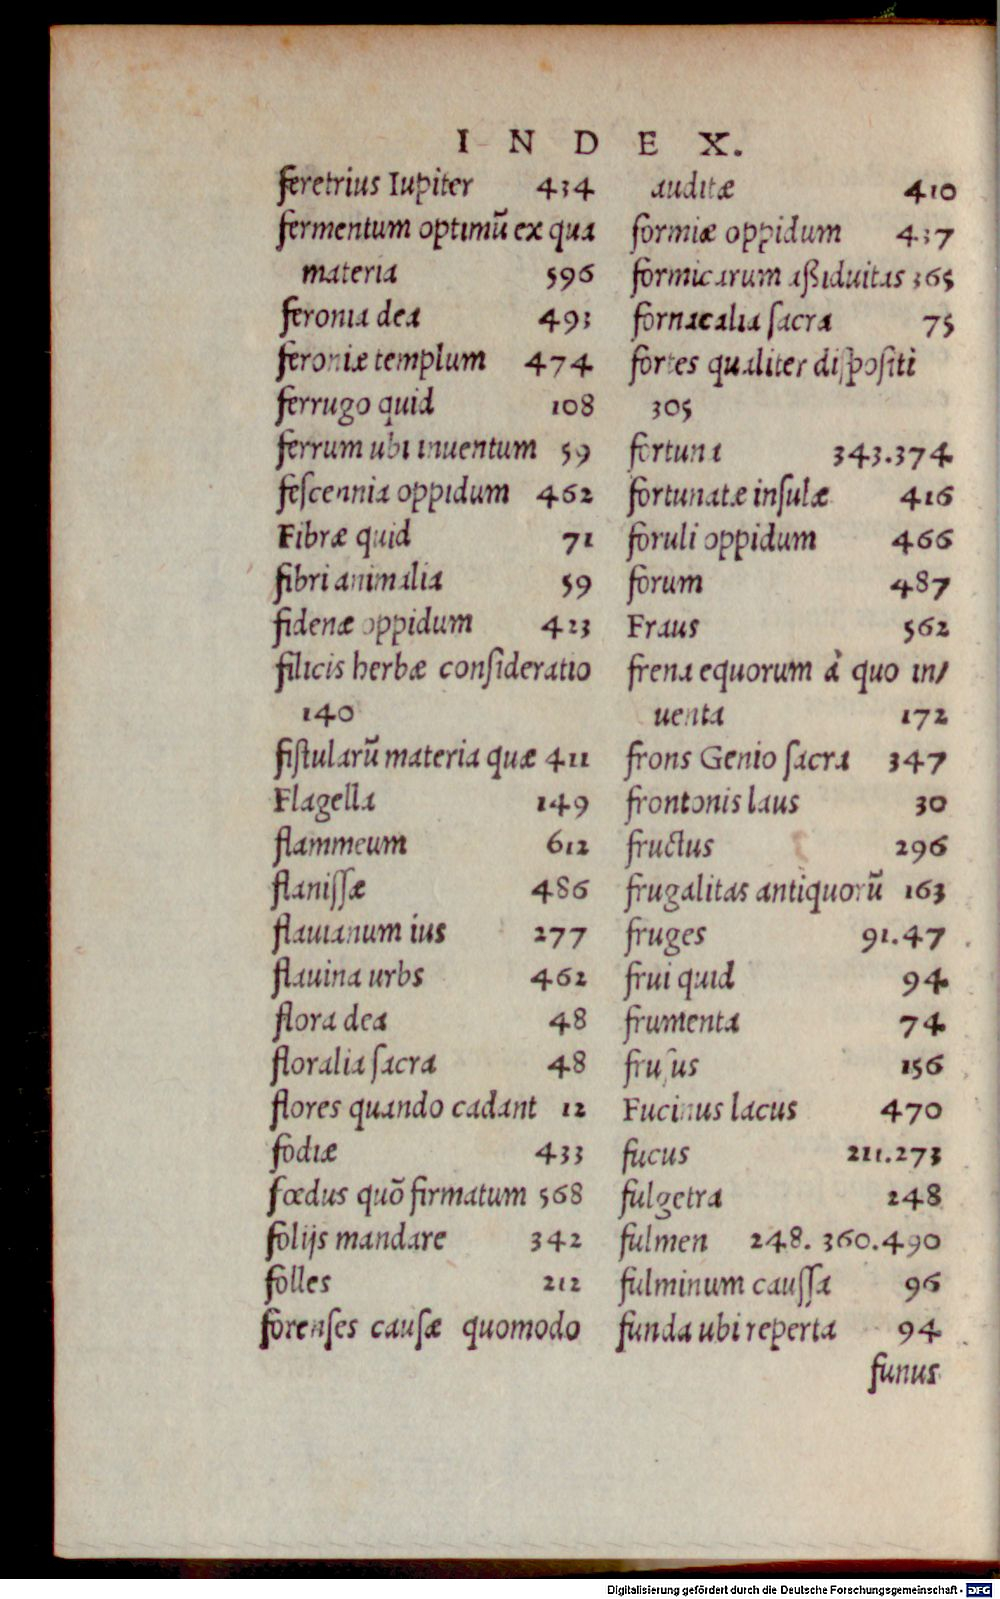 INDEX.
feretrius Iupiter 434
fermentum optimū ex qua
materia 596
feronia dea 493
feroniæ templum 474
ferrugo quid 108
ferrum ubi inuentum 59
feſcennia oppidum 462
Fibræ quid 71
fibri animalia 59
fidenæ oppidum 423
filicis herbæ conſideratio
140
fiſtularū materia quæ 411
Flagella 149
flammeum 612
flaniſſæ 486
flauianum ius 277
flauina urbs 462
flora dea 48
floralia ſacra 48
flores quando cadant 12
fodiæ 433
fœdus quõ firmatum 568
folijs mandare 342
folles 212
forenſes cauſæ quomodo
auditæ 410
formiæ oppidum 437
formicarum aßiduitas 365
fornacalia ſacra 75
fortes qualiter diſpoſiti
305
fortuna 343.374
fortunatæ inſulæ 416
foruli oppidum 466
forum 487
Fraus 562
frena equorum à quo in/
uenta 172
frons Genio ſacra 347
frontonis laus 30
fructus 296
frugalitas antiquorū 163
fruges 91.47
frui quid 94
frumenta 74
fruſus 156
Fucinus lacus 470
fucus 211.273
fulgetra 248
fulmen 248. 360.490
fulminum cauſſa 96
funda ubi reperta 94
funus
Digitalisierung gefördert durch die Deutsche Forschungsgemeinschaft - DFG